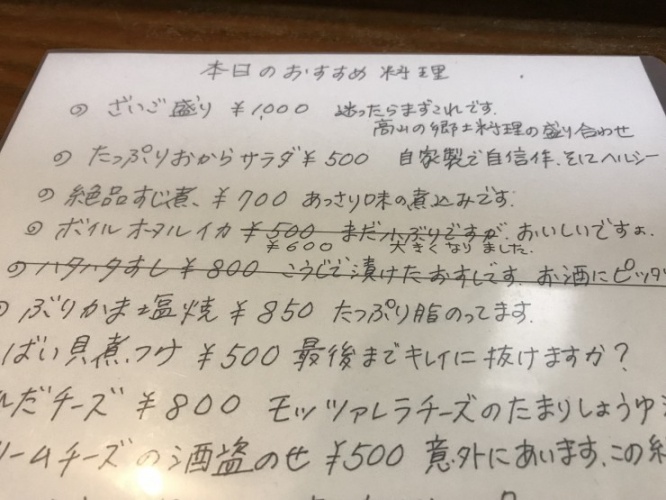 本日のおすすめ料理
◎ ざいご盛り ¥1,000 迷ったらまずこれです。
高山の郷土料理の盛り合わせ
◎ たっぷりおからサラダ ¥500 自家製で自信作、そしてヘルシー
◎ 絶品すじ煮、¥700 あっさり味の煮込みです。
◎ ボイルホタルイカ ¥500 まだ小ぶりですが、おいしいですょ。
¥600 大きくなりました。
◎ ハタハタすし ¥800 こうじで漬けたおすしです。お酒にピッタ
◎ ぶりかま塩焼 ¥850 たっぷり脂のってます。
ばい貝煮つけ ¥500 最後までキレイに抜けますか？
んだチーズ ¥800 モッツァレラチーズのたまりしょうゆ
リームチーズの酒盗のせ ¥500 意外にあいます、この